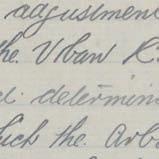 adjustmen
the Urban
determin
the Arb